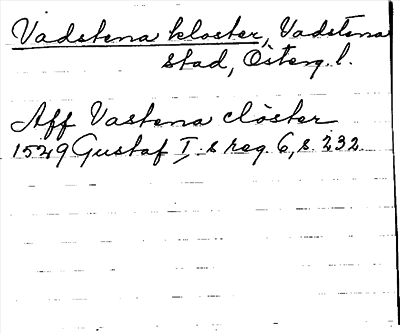 Vadstena kloster, Vadstena
stad, Österg. l.
Aff Vastena clöster
1529 Gustaf I:s reg. 6, s. 232